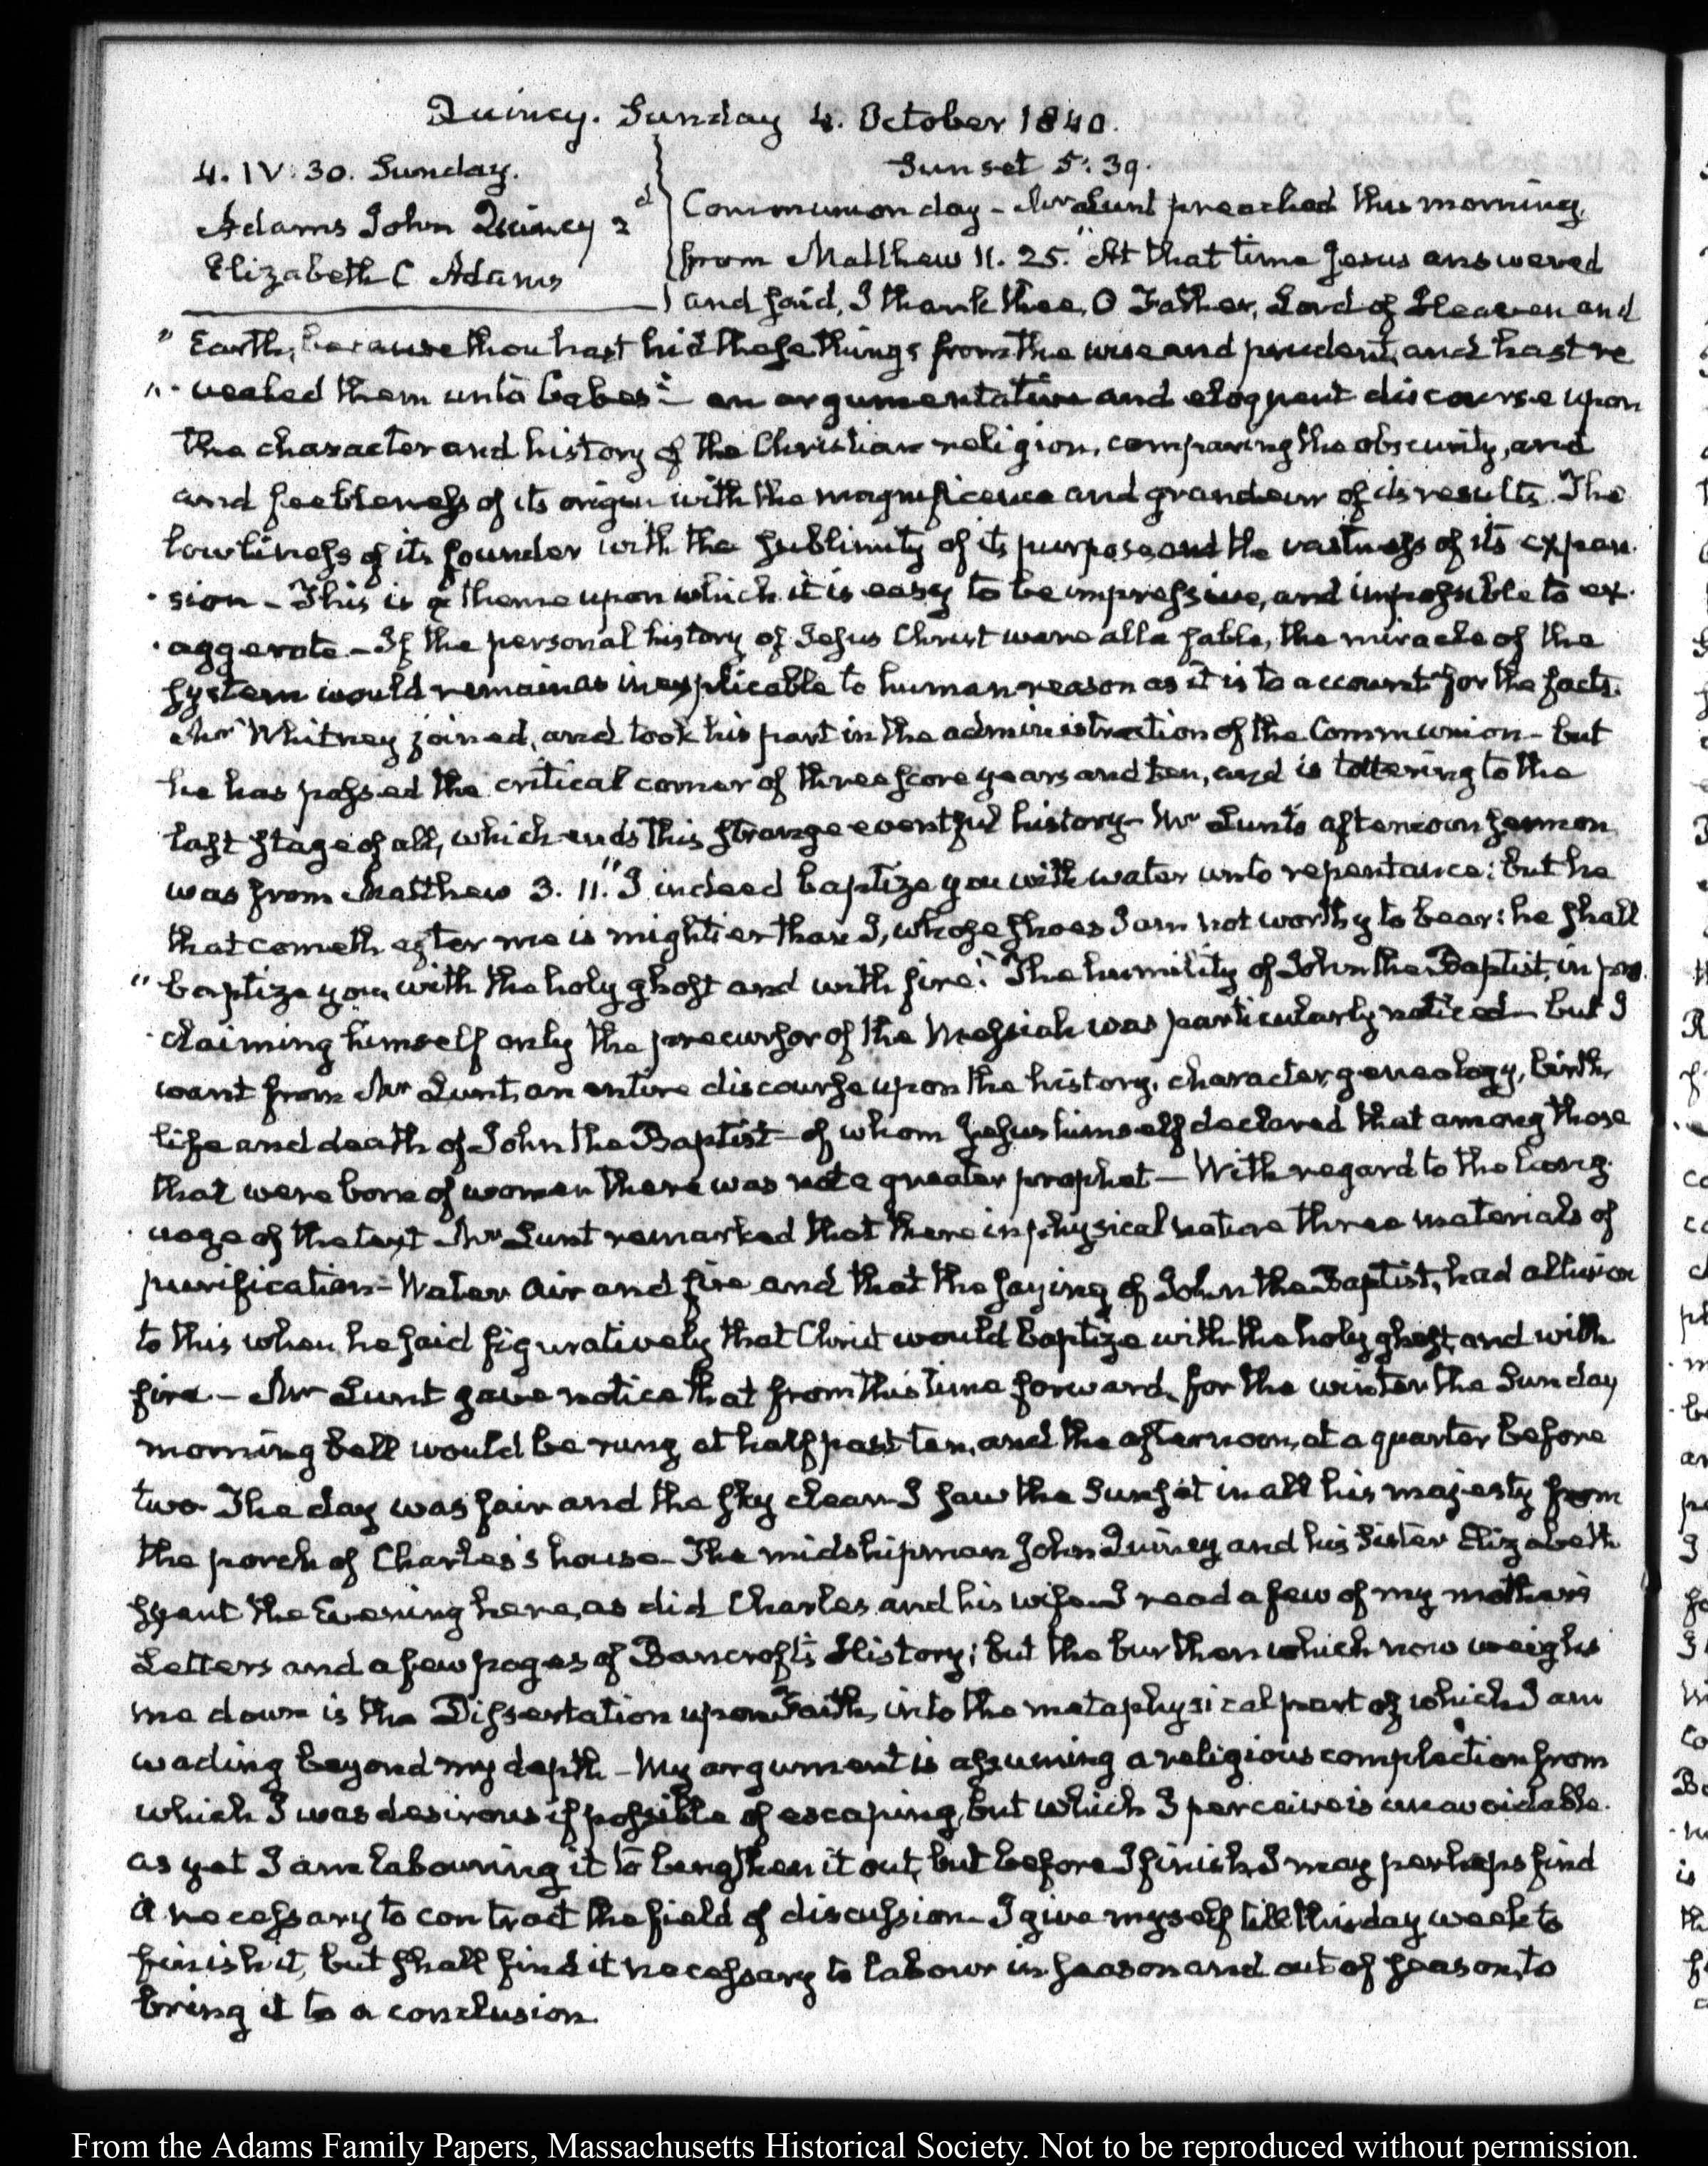 Quincy. Sunday 4. October 1840.
4. IV: 30. Sunday.
Adams John Quincy 2d
Elizabeth C Adams
Sunset 5:39.
Communion day – Mr Lunt preached this morning,
from Matthew 11. 25. "At that time Jesus answered
and said, I thank thee, O Father, Lord of Heaven and
" Earth, because thou hast hid these things from the wise and prudent, and hast re
"- vealed them unto babes" – an argumentative and eloquent discourse upon
the character and history of the Christian religion, comparing the obscurity, and
and feebleness of its origin with the magnificence and grandeur of its results. The
lowliness of its founder with the sublimity of its purpose, and the vastness of its expan-
-sion – This is a theme upon which it is easy to be impressive, and impossible to ex-
-aggerate – If the personal history of Jesus Christ were all a fable, the miracle of the
system would remain as inexplicable to human reason as it is to account for the facts.
Mr Whitney joined, and took his part in the administration of the Communion – but
he has passed the critical corner of three score years and ten, and is tottering to the
last stage of all, which ends this strange eventful history – Mr Lunt's afternoon sermon
was from Matthew 3. 11. "I indeed baptize you with water unto repentance: but he
that cometh after me is mightier than I, whose shoes I am not worthy to bear: he shall
" baptize you with the holy ghost and with fire." The humility of John the Baptist, in pro
-claiming himself only the precursor of the Messiah was particularly noticed – but I
want from Mr Lunt, an entire discourse upon the history, character, geneology, birth,
life and death of John the Baptist – of whom Jesus himself declared that among those
that were born of women there was not a greater prophet – With regard to the lang-
-uage of the text Mr Lunt remarked that there in physical nature three materials of
purification – Water Air and fire and that the saying of John the Baptist, had allusion
to this when he said figuratively that Christ would baptize with the holy ghost, and with
fire – Mr Lunt gave notice that from this time forward, for the winter the Sunday
morning bell would be rung at half past ten, and the afternoon, at a quarter before
two. The day was fair and the sky clear. I saw the Sun set in all his majesty from
the porch of Charles's house – The midshipman John Quincy and his Sister Elizabeth
spent the Evening here, as did Charles and his wife. I read a few of my mother's
Letters and a few pages of Bancroft's History; but the burthen which now weighs
me down is the Dissertation upon Faith, into the metaphysical part of which I am
wading beyond my depth – My argument is assuming a religious complection from
which I was desirous if possible of escaping, but which I perceive is unavoidable.
as yet I am labouring it to lengthen it out, but before I finish, I may perhaps find
it necessary to contract the field of discussion – I give myself till this day week to
finish it, but shall find it necessary to labour in season and out of season, to
bring it to a conclusion.
From the Adams Family Papers, Massachusetts Historical Society. Not to be reproduced without permission.